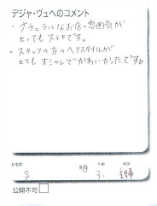 デジャ・ヴュへのコメント
・ナチュラルなお店の雰囲気が
とってもステキです。
・スタッフの方のヘアスタイルが
とてもオシャレでかわいかったです。
公開不可□